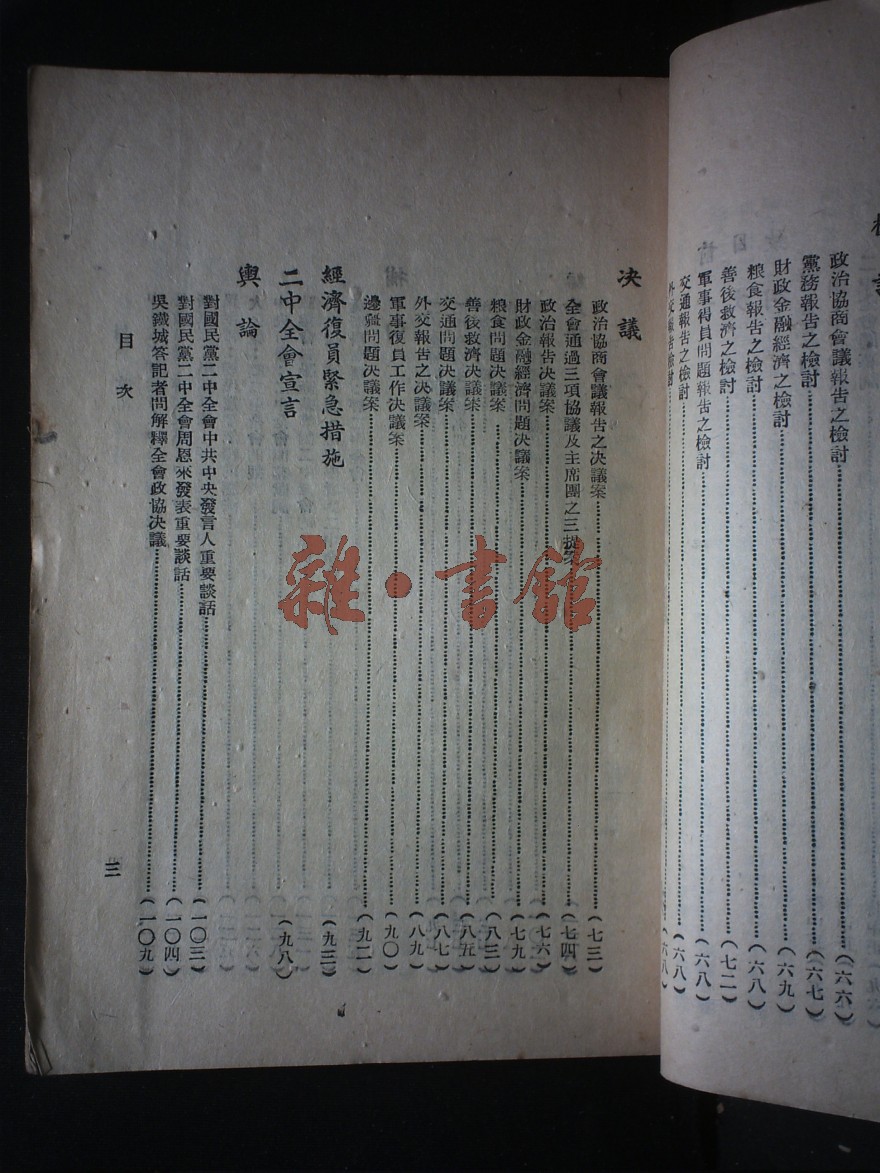 政治協商會議報告之檢討(六六)
黨務報告之檢討(六七)
財政金融經濟之檢討(六九)
粮食報告之檢討(六八)
善後救濟之檢討(七二)
軍事復員問題報告之檢討(六八)
交通報告之檢討(六八)
外交報告檢討(六八)
决議
政治協商會議報告之決議案(七三)
全會通過三項協議及主席團之三提案(七四)
政治報告决議案(七六)
財政金融經濟問題决議案(七九)
粮食問題决議案(八三)
善後救濟决議案(八五)
交通問題决議案(八七)
外交報告之决議案(八九)
軍事復員工作决議案(九〇)
邊疆問題决議案(九二)
經濟復員緊急措施(九三)
二中全會宣言(九八)
輿論
對國民黨二中全會中共中央發言人重要談話(一〇三)
對國民黨二中全會周恩來發表重要談話(一〇四)
吳鐵城答記者問解釋全會政協决議(一〇九)
目次
三
雜·書館